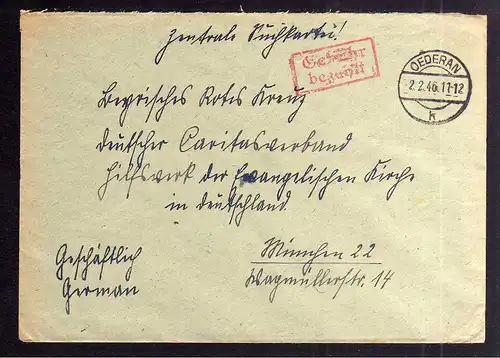 Zentrale Suchkartei!
Gebühr
bezahlt
OEDERAN
2.2.46.11-12
k
Bayrisches Rotes Kreuz
deutscher Caritasverband
Hilfswerk der Evangelischen Kirche
in deutschland.
Geschäftlich
German
München 22
Wagmüllerstr. 14